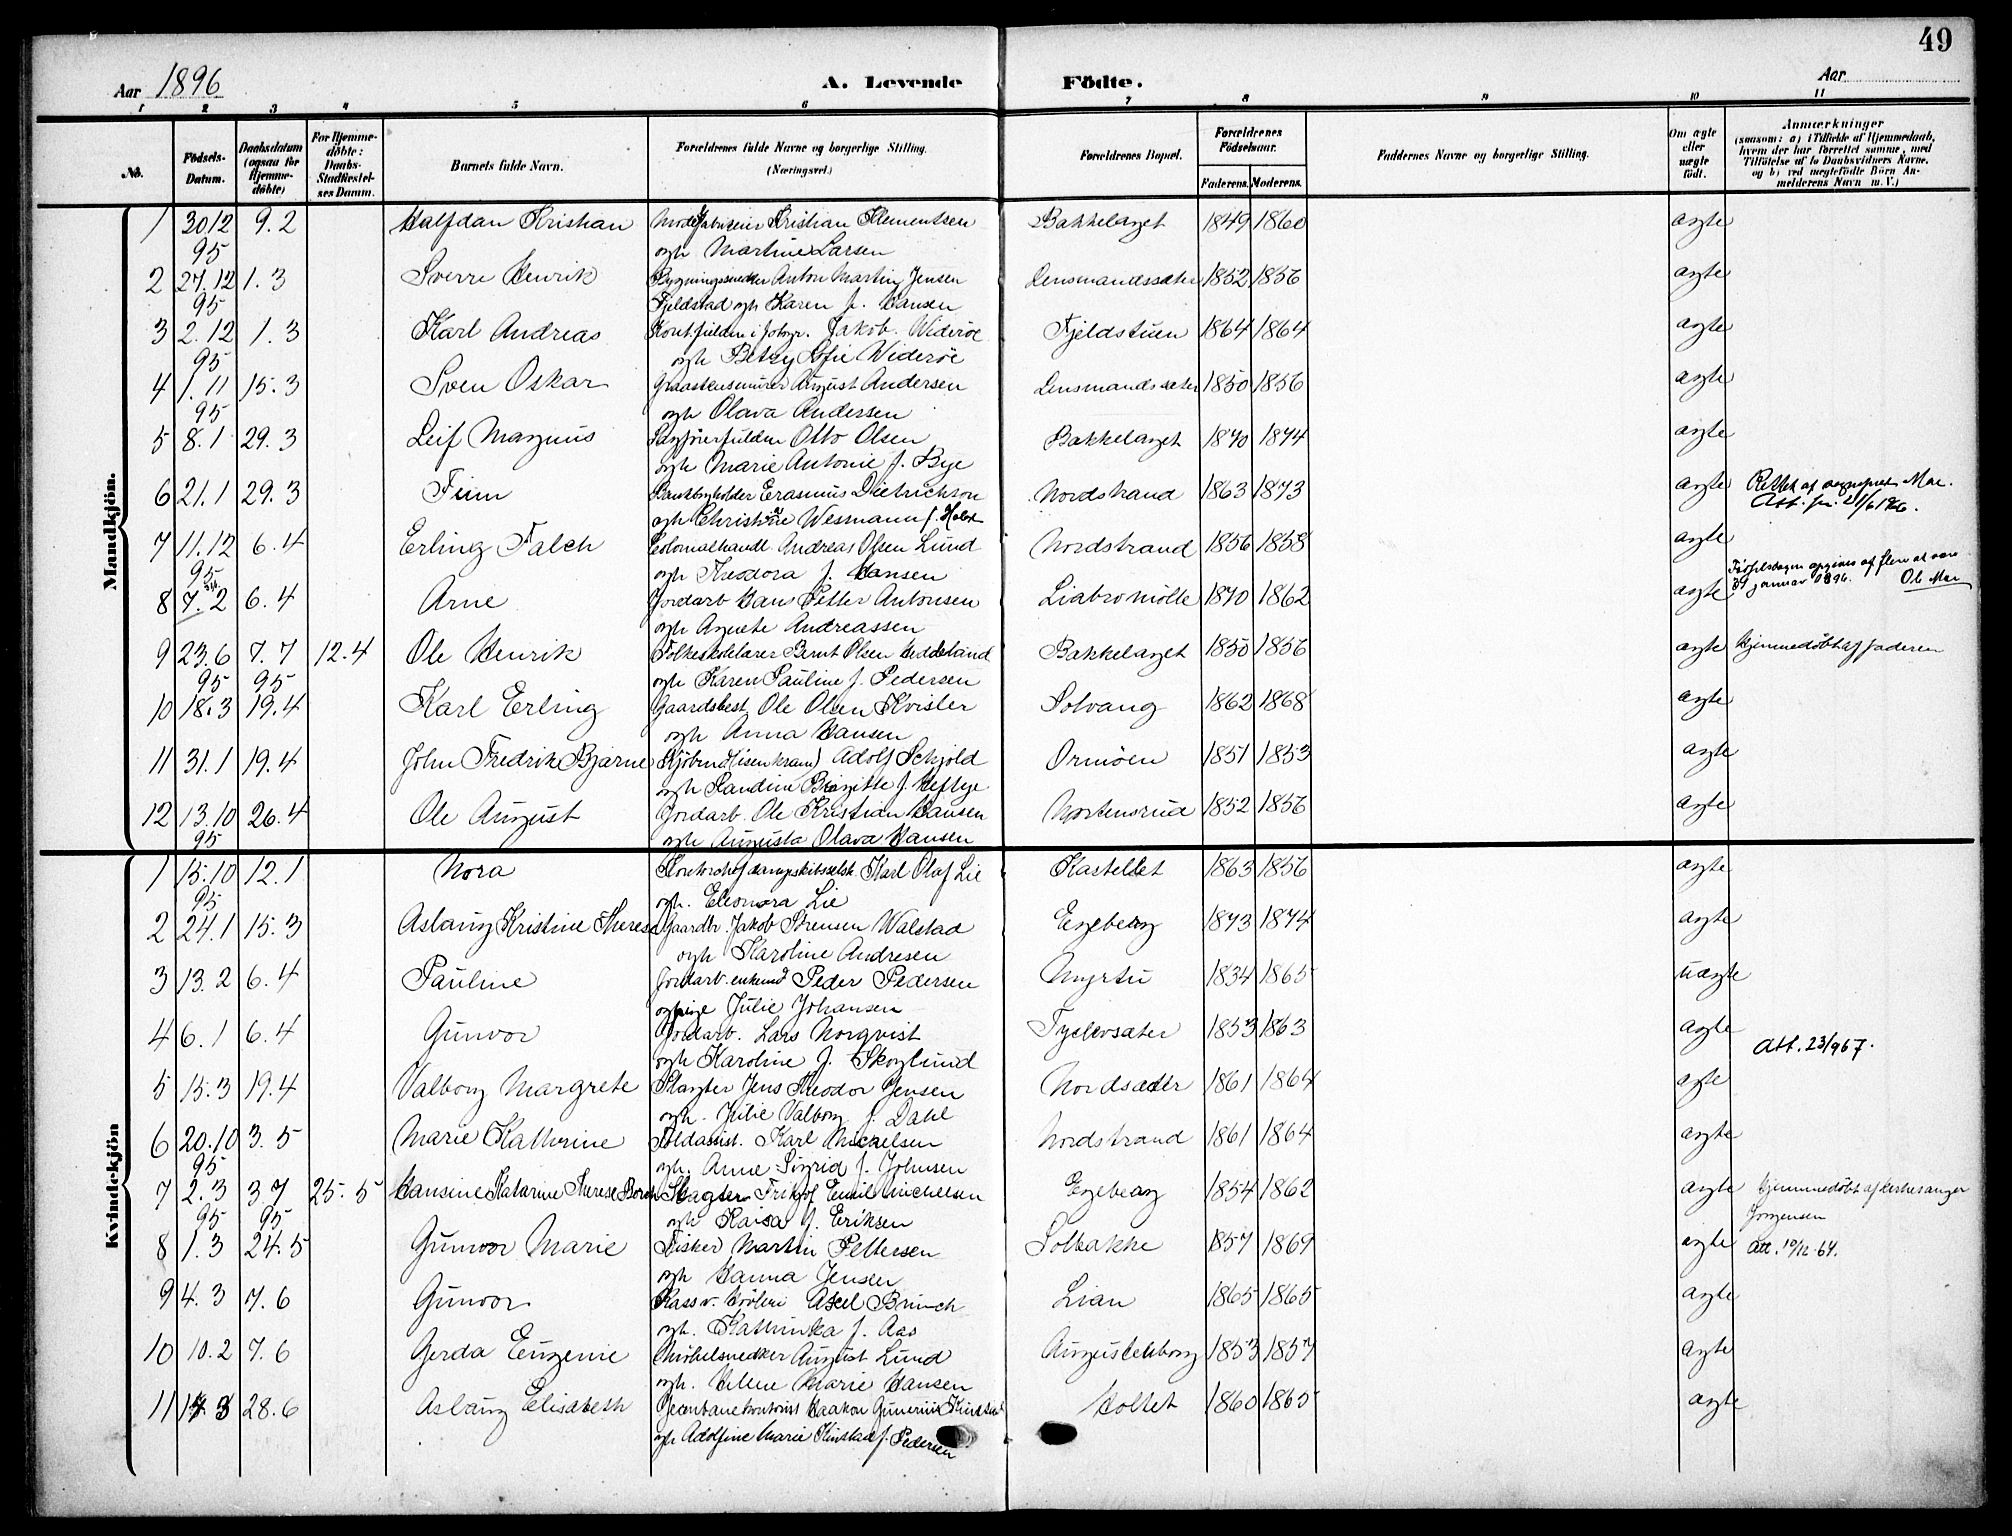 49
Aar 1896 A. Levende Födte. Aar
1 2 3 4 5 6 7 8 9 10 11
No. Födsels-Datum. Daabsdatum (ogsaa for Hjemme-döbte) For Hjemme-döbte: Daabs-Stadfestel-ses Datum. Barnets fulde Navn. Forældrenes fulde Navne og borgerlige Stilling. (Næringsvei.) Forældrenes Bopæl. Forældrenes Födselsaar. Faderens. Moderens. Faddernes Navne og borgerlige Stilling. Om ægte eller uægte födt. Anmærkninger (saasom: a) i Tilfælde af Hjemmedaab, hvem der har forrettet samme, med Tilföielse af to Daabsvidners Navne, og b) ved uegtefödte Börn An-melderens Navn m. V.)
Mandkjön.
1 30.12 9.2 Halfdan Kristian Kristian Klementsen Bakkelaget 1849 1860 ægte
95 og h Martine Larsen
2 27.12 1.3 Sverre Henrik Bygningssnedker Anton Martin Jensen Lensmandssæter 1852 1856 ægte
95 Fjeldstad og h Karen f. Hansen
3 2.12 1.3 Karl Andreas Jakob Widerøe Fjeldstuen 1864 1864 ægte
95 og h Betzy Sofie Widerøe
4 1.11 15.3 Sven Oskar Graastensmurer August Andersen Lensmandssæter 1850 1856 ægte
95 og h Olava Andersen
5 8.1 29.3 Leif Magnus Sagførerfuldm Otto Olsen Bakkelaget 1870 1874 ægte
og h Marie Antonie f. Bye
6 21.1 29.3 Finn Bankbogholder Erasmus Dietrichson Nordstrand 1863 1873 ægte
og h Christiane Wesmann f. Holst
7 11.12 6.4 Erling Falch Colonialhandl. Andreas Olsen Lund Nordstrand 1856 1858 ægte
95 og h Theodora f. Hansen
8 7.2 6.4 Arne Jordarb Hans Petter Antonsen Liabromölle 1870 1862 ægte Fødselsdagen opgives af flere at være 31 januar 1896. Ole Moe
og h Agnete Andreassen
9 23.6 7.7 12.4 Ole Henrik Folkeskolelærer Bernt Olsen Heddeland Bakkelaget 1850 1856 ægte Hjemmedöbt af faderen
95 95 og h Karen Pauline f. Pedersen
10 18.3 19.4 Karl Erling Gaardsbest. Ole Olsen Kvisler Solvang 1862 1868 ægte
og h Anna Hansen
11 31.1 19.4 John Fredrik Bjarne Kjöbmd (isenkram) Adolf Schjöld Ormöen 1851 1853 ægte
og h Kandine Birgitte f. Heftye
12 13.10 26.4 Ole August Jordarb. Ole Kristian Hansen Mortensrud 1852 1856 ægte
95 og h Augusta Olava Hansen
Kvindekjön
1 15.10 12.1 Nora Karl Olaf Lie Kastellet 1863 1856 ægte
95 og h. Eleonora Lie
2 24.1 15.3 Aslaug Kristine Therese Gaardbr. Jakob Sørensen Walstad Engeberg 1873 1874 ægte
og h Karoline Andresen
3 13.2 6.4 Pauline Jordarb. enkemd Peder Pedersen Myrtu 1834 1865 uægte
og pige Julie Johansen
4 6.1 6.4 Gunvor Jordarb. Lars Norqvist 1853 1863 ægte Att. 23/967.
og h Karoline f. Skoglund
5 15.3 19.4 Valborg Margrete Slagter Jens Theodor Jensen Nordsæter 1861 1864 ægte
og h. Julie Valborg f. Dahl
6 20.10 3.5 Marie Kathrine Toldassist. Karl Michelsen Nordstrand 1861 1864 ægte
95 og h. Anne Sigrid f. Johnsen
7 2.3 3.7 25.5 Hansine Katarine Therese Borch Slagter Fritjof Emil Michelsen Engeberg 1854 1862 ægte Hjemmedöbt af kirkesanger Jorgensen
95 95 og h Kaisa f. Eriksen
8 1.3 24.5 Gunvor Marie Fisker Martin Pettersen Solbakke 1857 1869 ægte Att. 10/12-64.
og h Hanna Jensen
9 4.3 7.6 Gunvor Axel Brunch Lian 1865 1865 ægte
og h. Kathinka f. Aas
10 10.2 7.6 Gerda Eugenie Möbelsnedker August Lund Augustenborg 1853 1857 ægte
og h. Helene Marie Hansen
11 28.6 Aslaug Elisabeth Haakon Holtet 1860 1865 ægte
og h Adolfine Marie Kinstad f. Pedersen